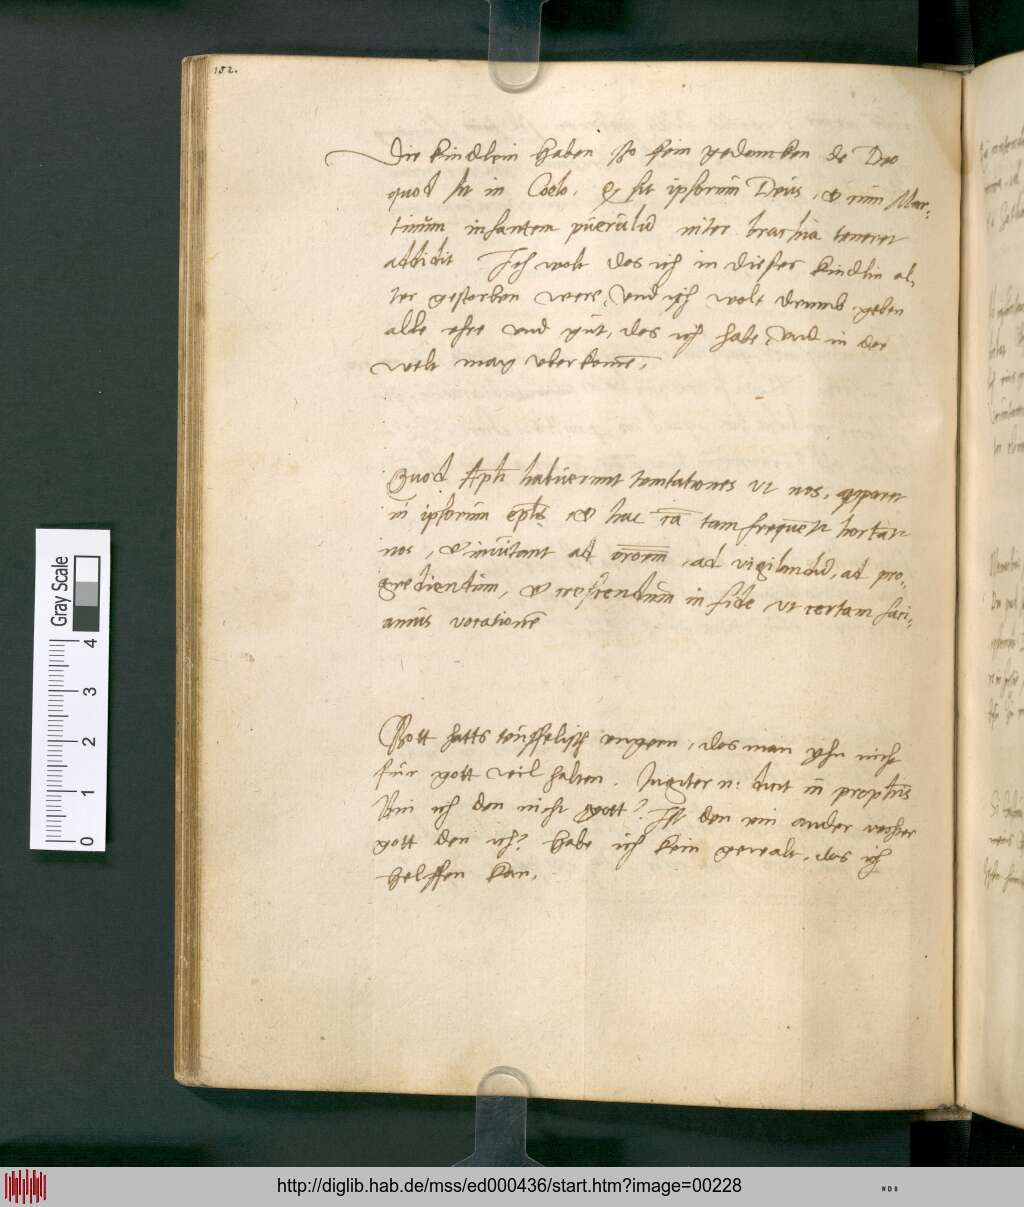 182.
Die kindlein haben so fein gedancken de Deo
quod sit in Coelo, & sit ipsorum Deus, & cum Mar-
tinum infantem puerulū inter brachia teneret
addidit Ich wolt das ich in dieses kindlin al-
ter gestorben were, Vnd ich wolt drumb geben
alle ehre vnd gut, das ich habe, Vnd in der
welt mag vberkomē,
Quod Apłi habuerunt tentationes ut nos, apparet
in ipsorum epłis & hac cā tam frequēter hortātur
nos, & inuitant ad orōem, ad vigilandū, ad pro-
grediendum, & crescendum in fide ut certam faci-
amus vocationē
Gott hatts teuffelisch vngern, das man yhn nicht
fur gott wil halten. Jugiter n: dicit in prophetis
Bin ich den nicht gott? Ist den ein ander rechter
gott den ich? Habe ich kein gewalt, das ich
helffen kan,
Gray Scale
0 1 2 3 4
http://diglib.hab.de/mss/ed000436/start.htm?image=00228